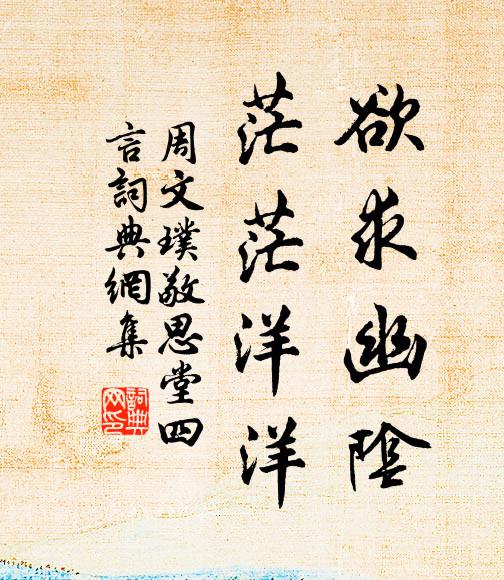 欲求幽陰
茫茫洋洋
周文璞敬思堂四
言詞典網集
詞典
网印